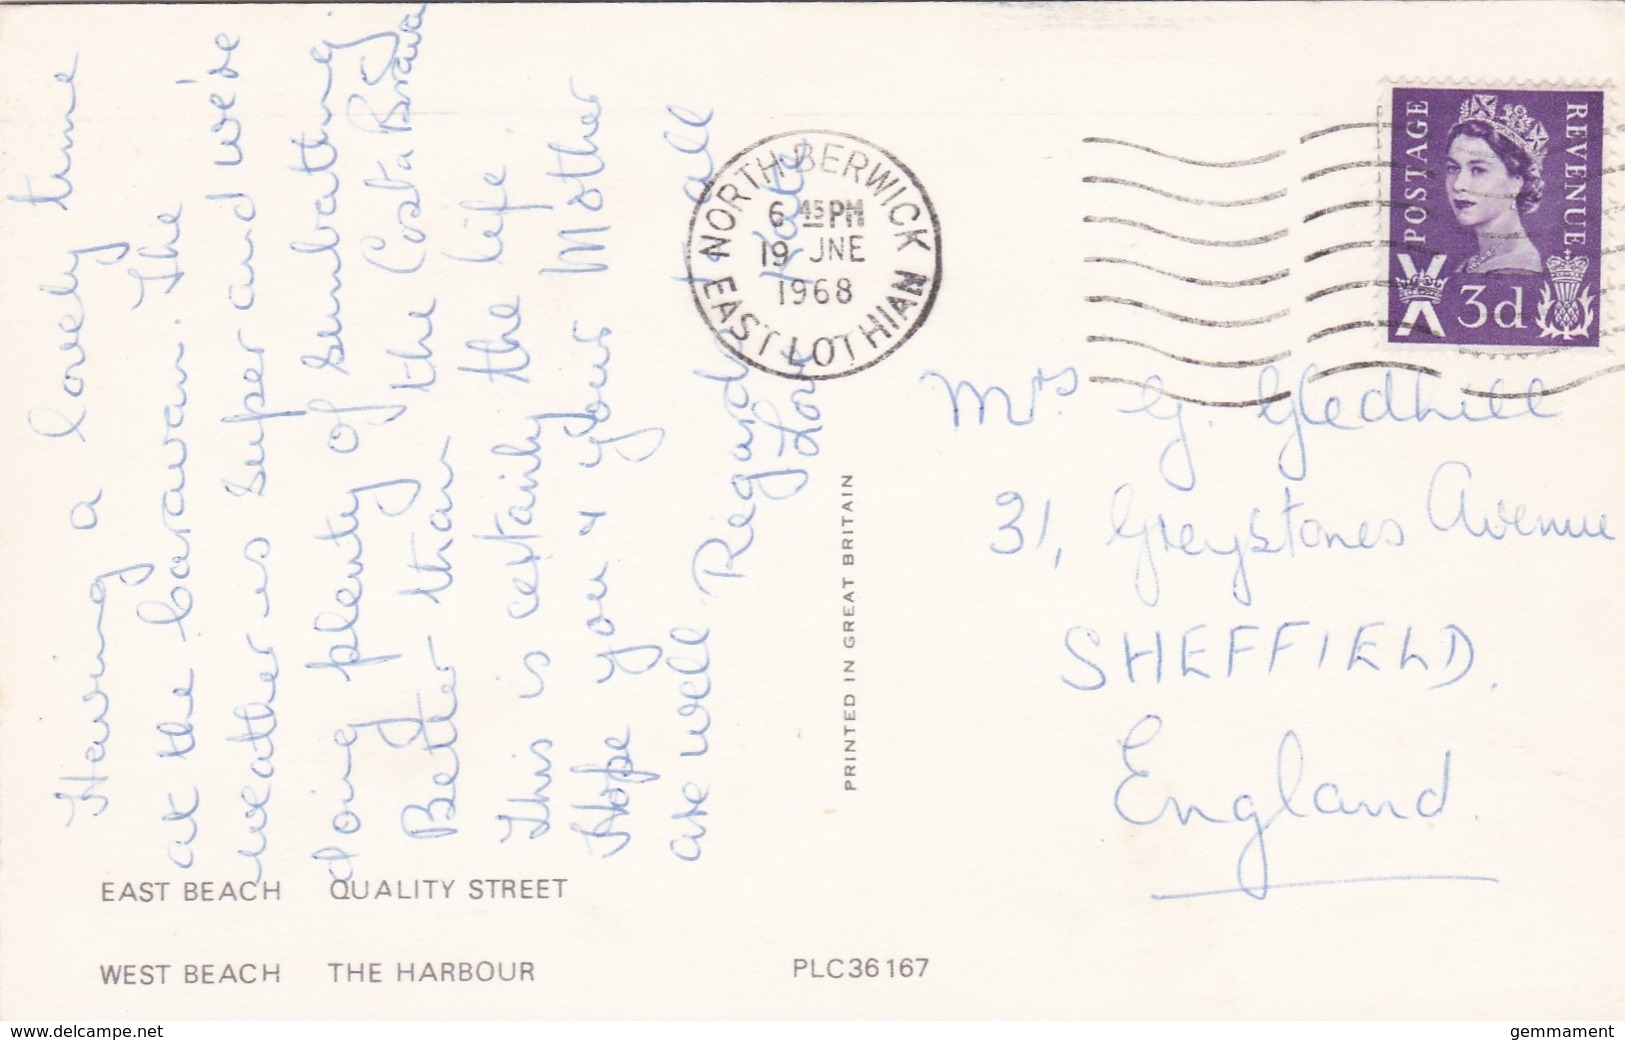 Having a lovely time
at the caravan. The
weather is super and we're
doing plenty of sunbathing.
Better than the Costa Brava
This is certainly the life.
Hope you & your Mother
are well. Regards to all
Love Kate
NORTH BERWICK
6 45 PM
19 JNE
1968
EAST LOTHIAN
POSTAGE
REVENUE
3d
Mrs G. Gledhill
31, Greystones Avenue
SHEFFIELD.
England.
PRINTED IN GREAT BRITAIN
EAST BEACH QUALITY STREET
WEST BEACH THE HARBOUR
PLC36167
www.delcampe.net
gemmament